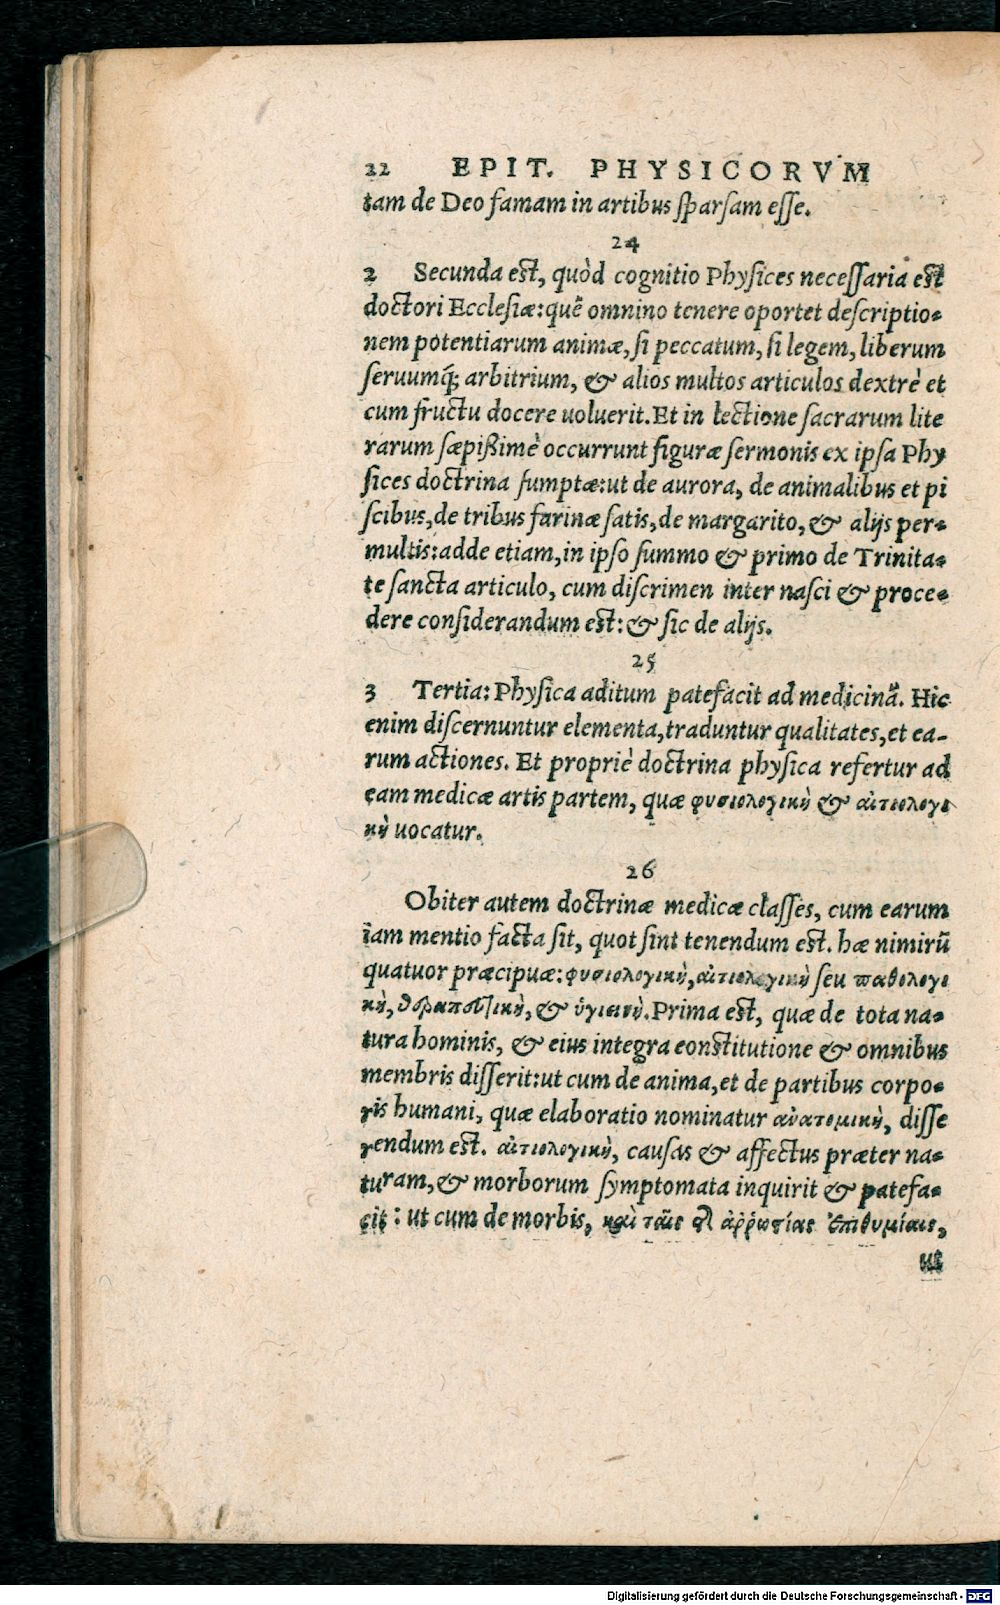 22 EPIT. PHYSICORVM
tam de Deo famam in artibus sparsam esse.
24
2 Secunda est, quòd cognitio Physices necessaria est
doctori Ecclesiæ: quẽ omnino tenere oportet descriptio-
nem potentiarum animæ, si peccatum, si legem, liberum
seruumq́; arbitrium, & alios multos articulos dextrè et
cum fructu docere uoluerit. Et in lectione sacrarum lite
rarum sæpißimè occurrunt figuræ sermonis ex ipsa Phy
sices doctrina sumptæ: ut de aurora, de animalibus et pi
scibus, de tribus farinæ satis, de margarito, & alijs per-
multis: adde etiam, in ipso summo & primo de Trinita-
te sancta articulo, cum discrimen inter nasci & proce-
dere considerandum est: & sic de alijs.
25
3 Tertia: Physica aditum patefacit ad medicinã. Hic
enim discernuntur elementa, traduntur qualitates, et ea-
rum actiones. Et propriè doctrina physica refertur ad
eam medicæ artis partem, quæ φυσιολογικὴ & αἰτιολογι
κὴ uocatur.
26
Obiter autem doctrinæ medicæ classes, cum earum
iam mentio facta sit, quot sint tenendum est. hæ nimirũ
quatuor præcipuæ: φυσιολογικὴ, αἰτιολογικὴ seu παθολογι
κὴ, θεραπευτικὴ, & ὑγιεινὴ. Prima est, quæ de tota na-
tura hominis, & eius integra constitutione & omnibus
membris disserit: ut cum de anima, et de partibus corpo-
ris humani, quæ elaboratio nominatur ανατομικὴ, disse
rendum est. αἰτιολογικὴ, causas & affectus præter na-
turam, & morborum symptomata inquirit & patefa-
cit: ut cum de morbis, καὶ ταῖς ἀῤῥωστίας ἐπιθυμίαις,
ut
Digitalisierung gefördert durch die Deutsche Forschungsgemeinschaft - DFG